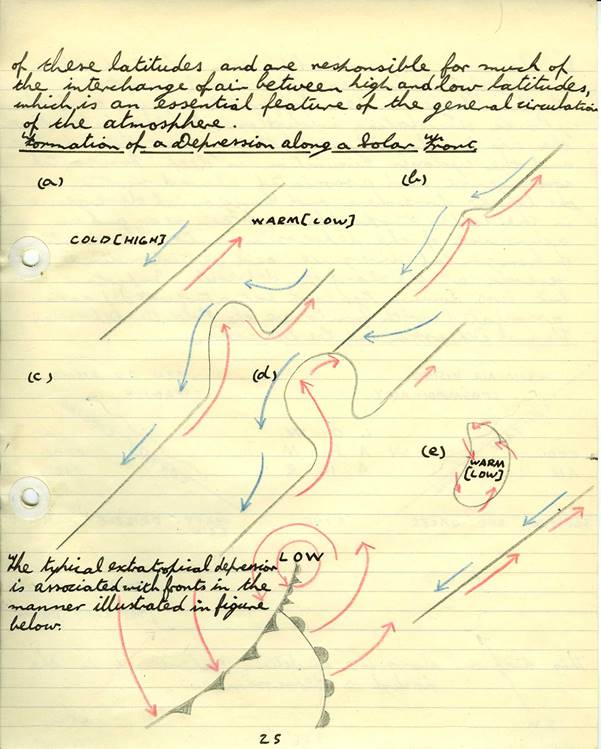 of these latitudes and are responsible for much of
the interchange of air between high and low latitudes,
which, is an essential feature of the general circulation
of the atmosphere.
Formation of a Depression along a Polar Front
(a)
(b)
WARM[LOW]
COLD[HIGH]
(c)
(d)
(e)
WARM
[LOW]
LOW
The typical extratropical depression
is associated with fronts in the
manner illustrated in figure
below.
25